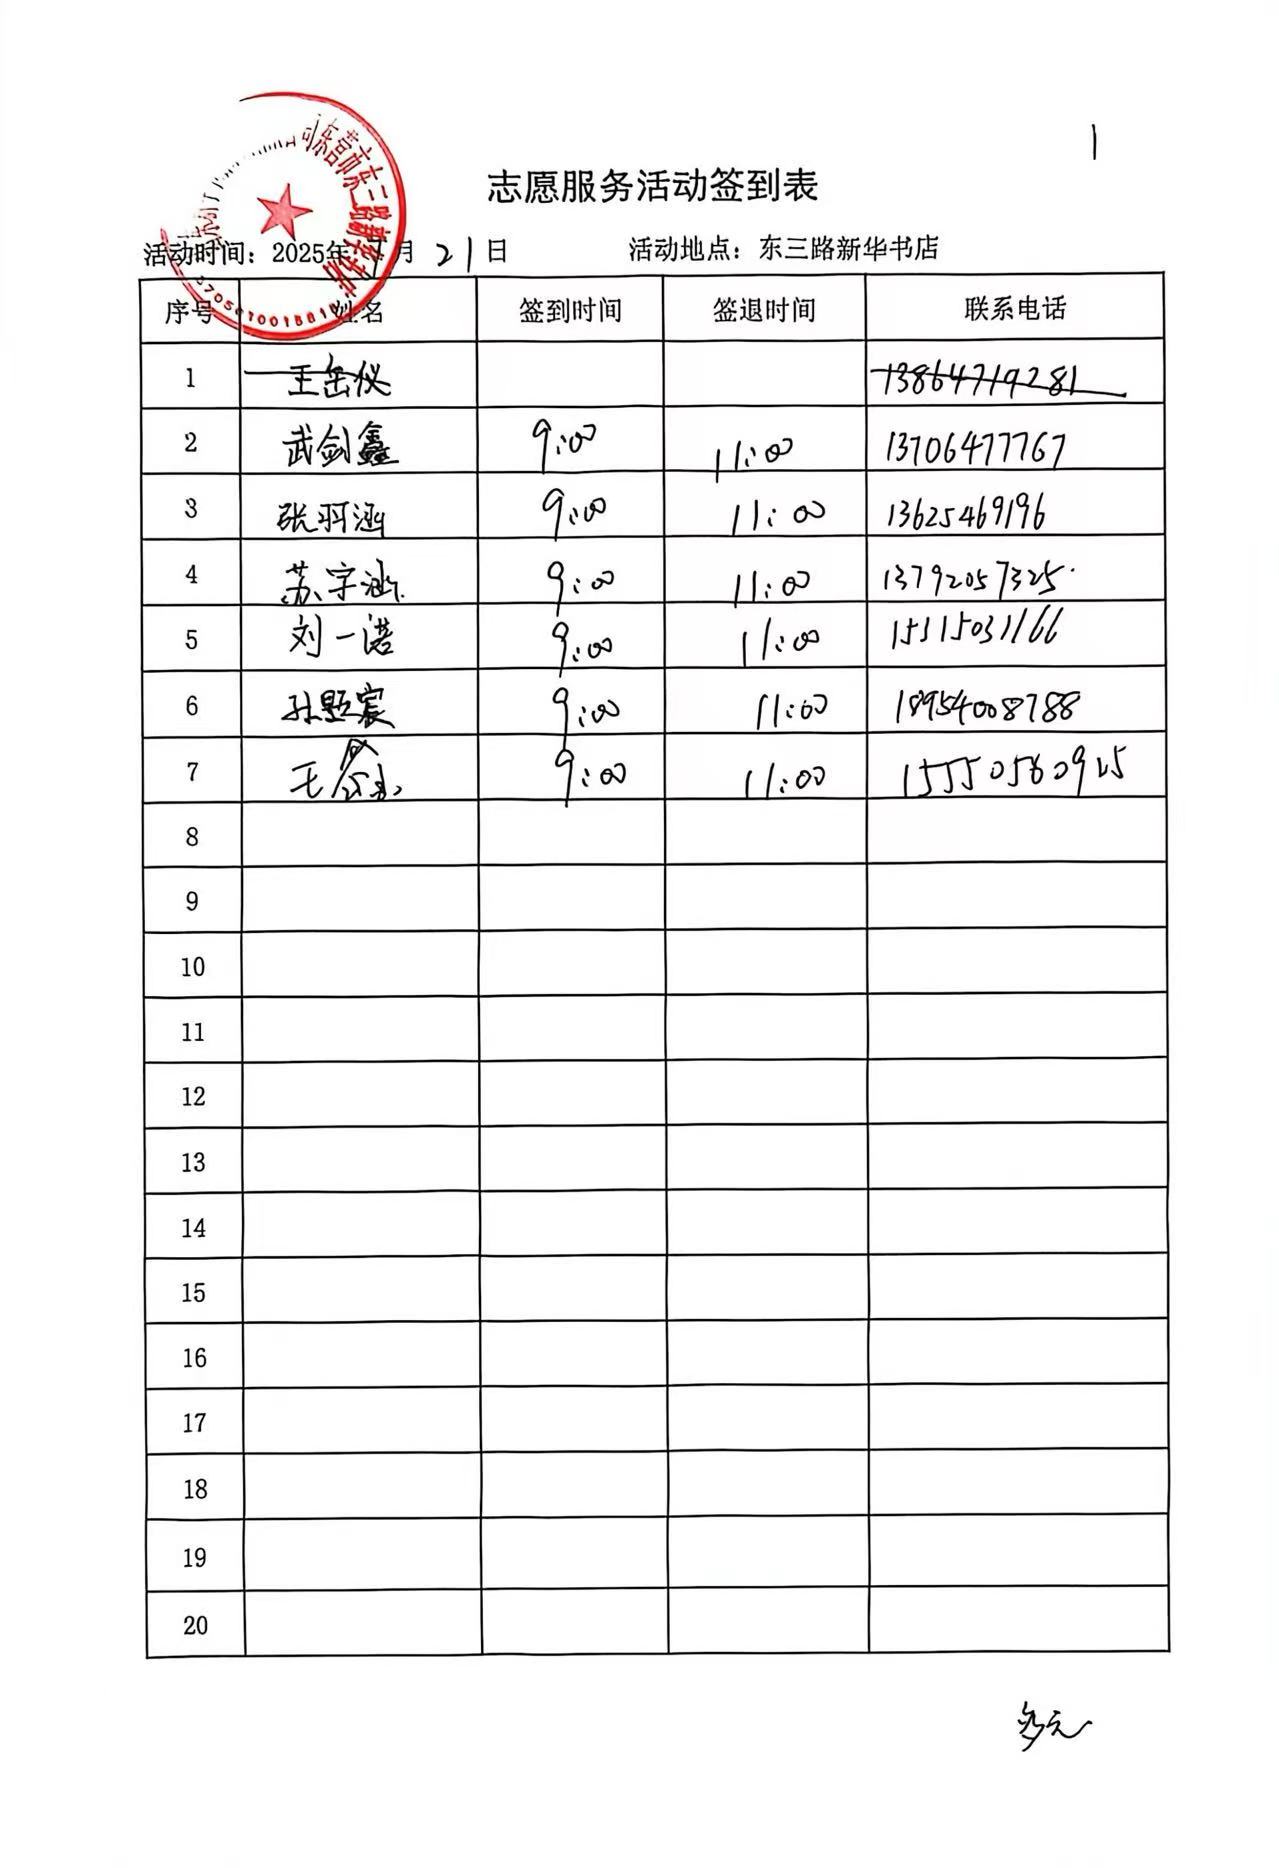 1
志愿服务活动签到表
东营市东三路新华书店
活动时间：2025年7月21日 活动地点：东三路新华书店
序号 姓名 签到时间 签退时间 联系电话
1 王岳仪 13864719281
2 武剑鑫 9:00 11:00 13706477767
3 张羽涵 9:00 11:00 13625469196
4 苏宇涵 9:00 11:00 13792057325
5 刘一诺 9:00 11:00 15115031166
6 孙题宸 9:00 11:00 18954008788
7 王 9:00 11:00 15550560925
8
9
10
11
12
13
14
15
16
17
18
19
20